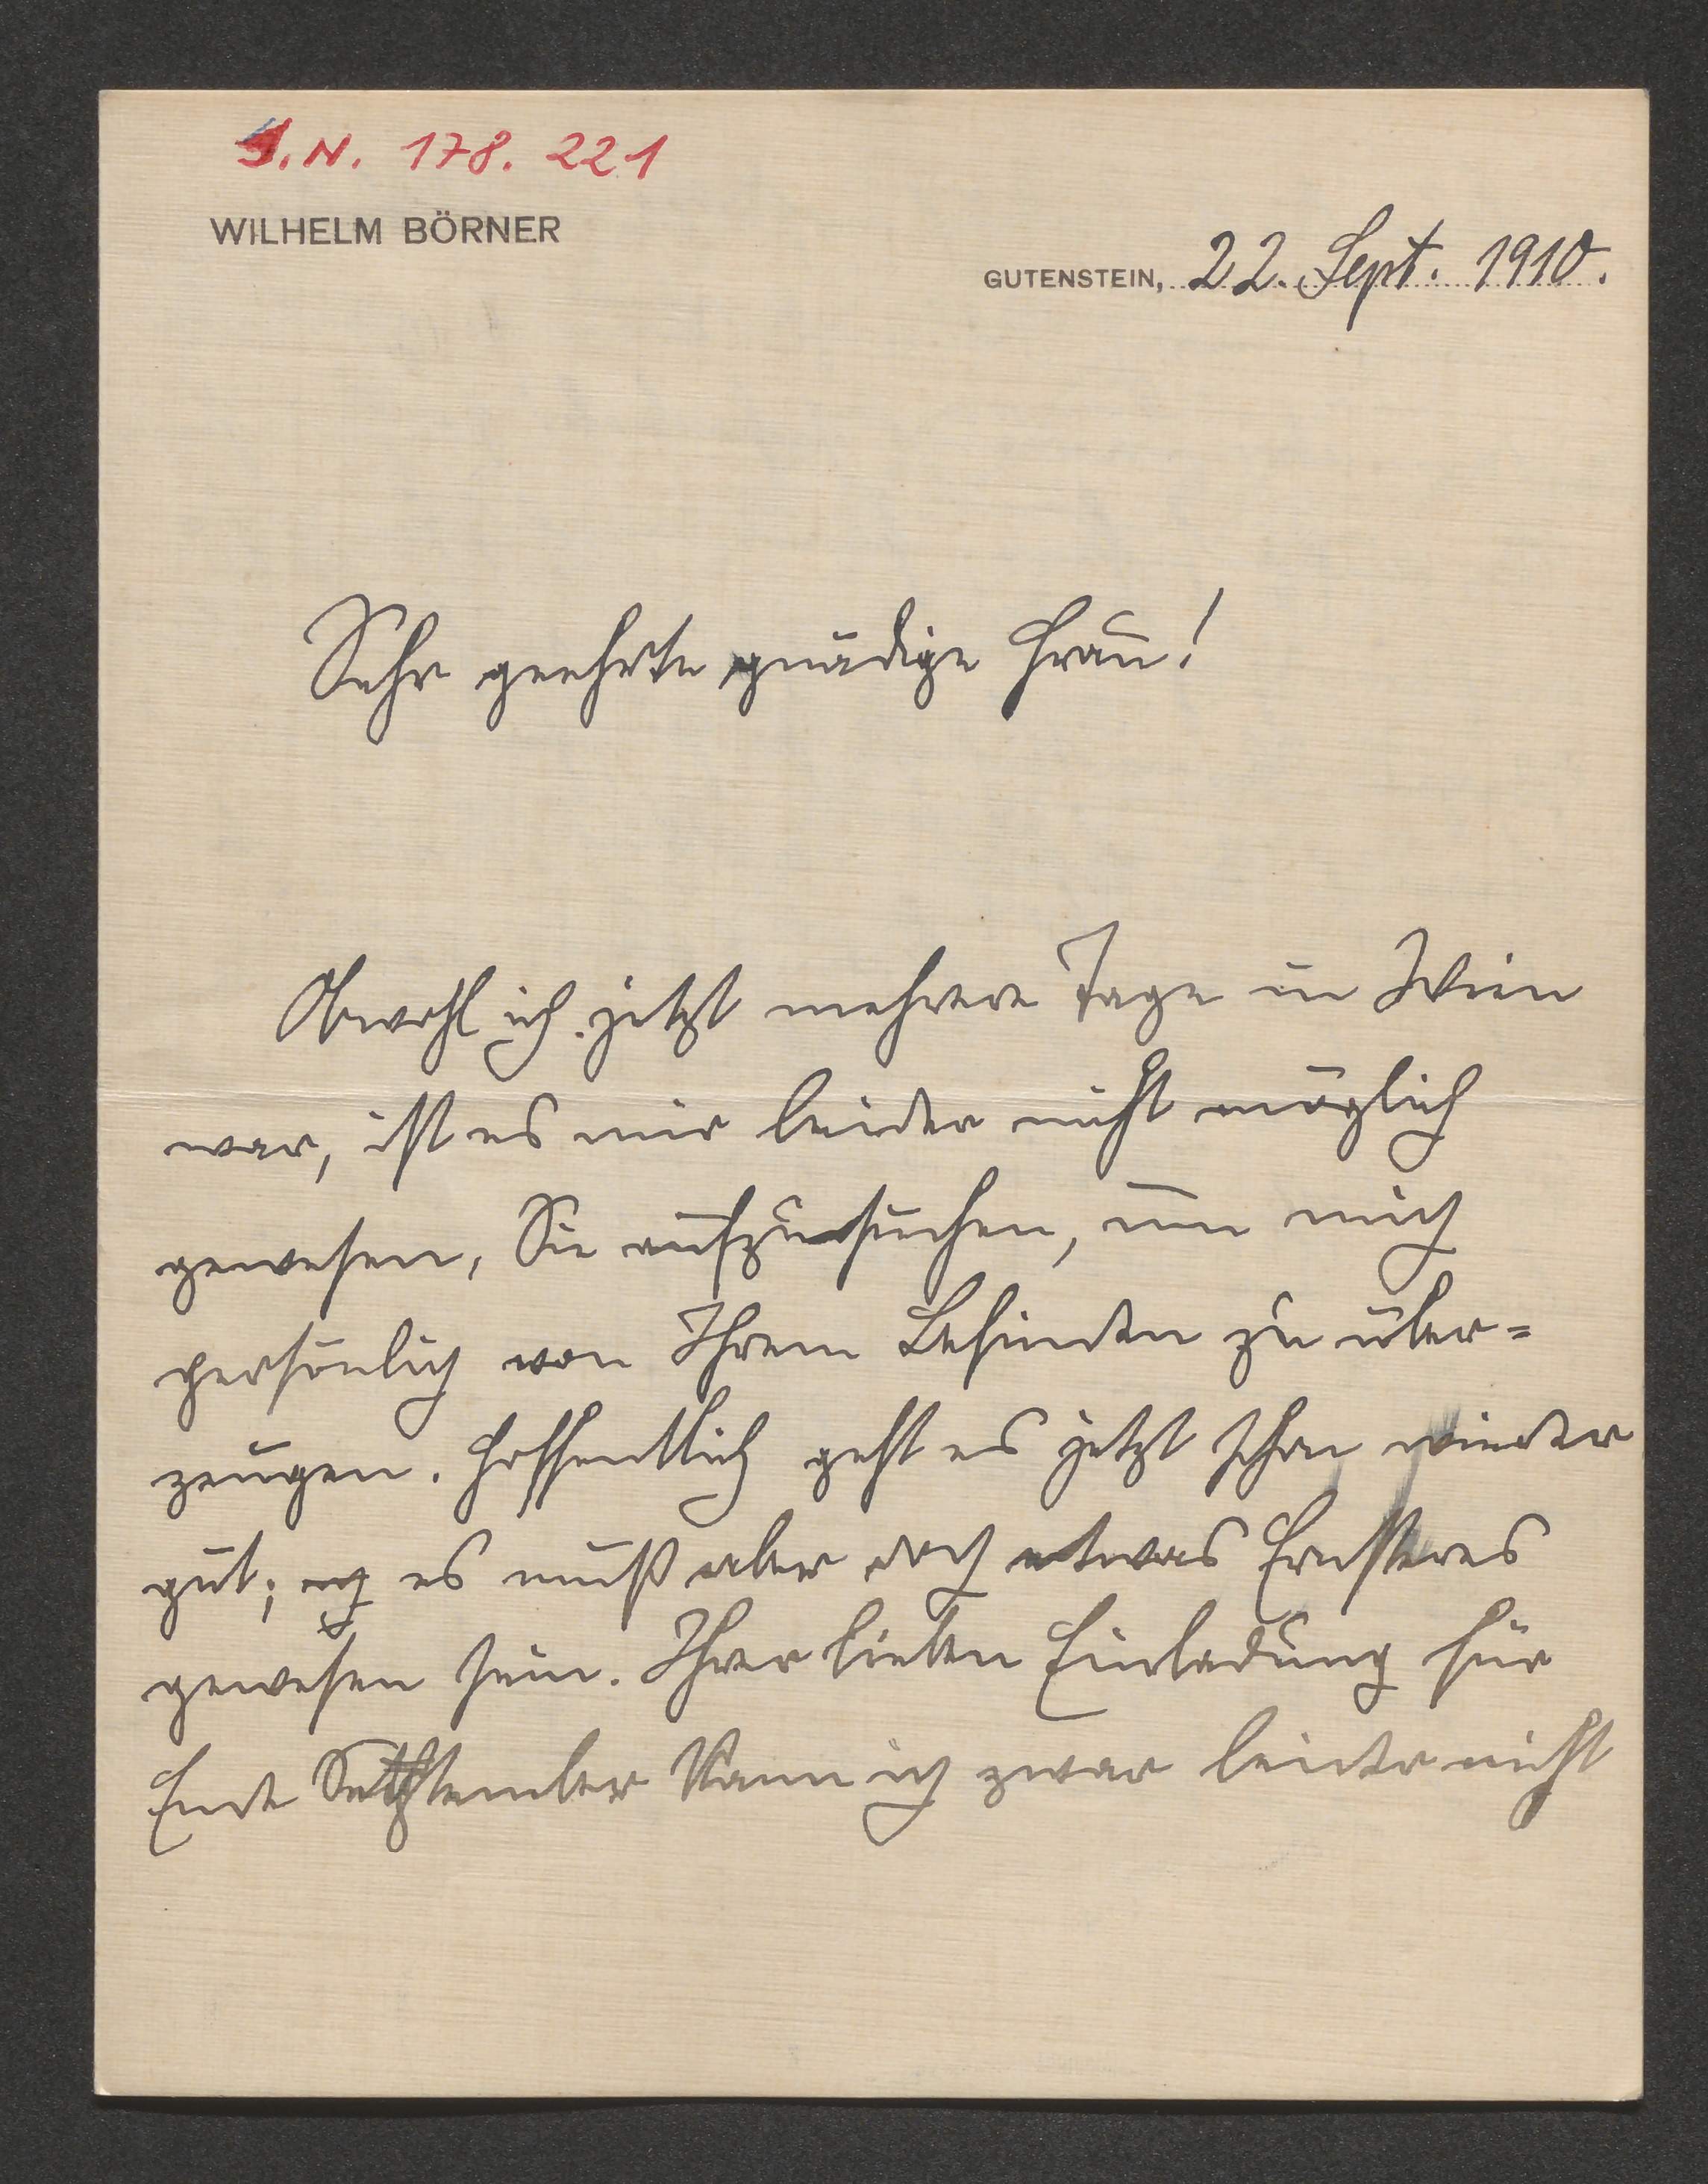 J.N. 178.221
WILHELM BÖRNER
GUTENSTEIN, 22. Sept. 1910.
Sehr geehrte gnädige Frau!
Obwohl ich jetzt mehrere Tage in Wien
war, ist es mir leider nicht möglich
gewesen, Sie aufzusuchen, um mich
persönlich von Ihrem Befinden zu über=
zeugen. Hoffentlich geht es jetzt schon wieder
gut; es muß aber doch etwas Ernsteres
gewesen sein. Ihrer lieben Einladung für
Ende September kann ich zwar leider nicht